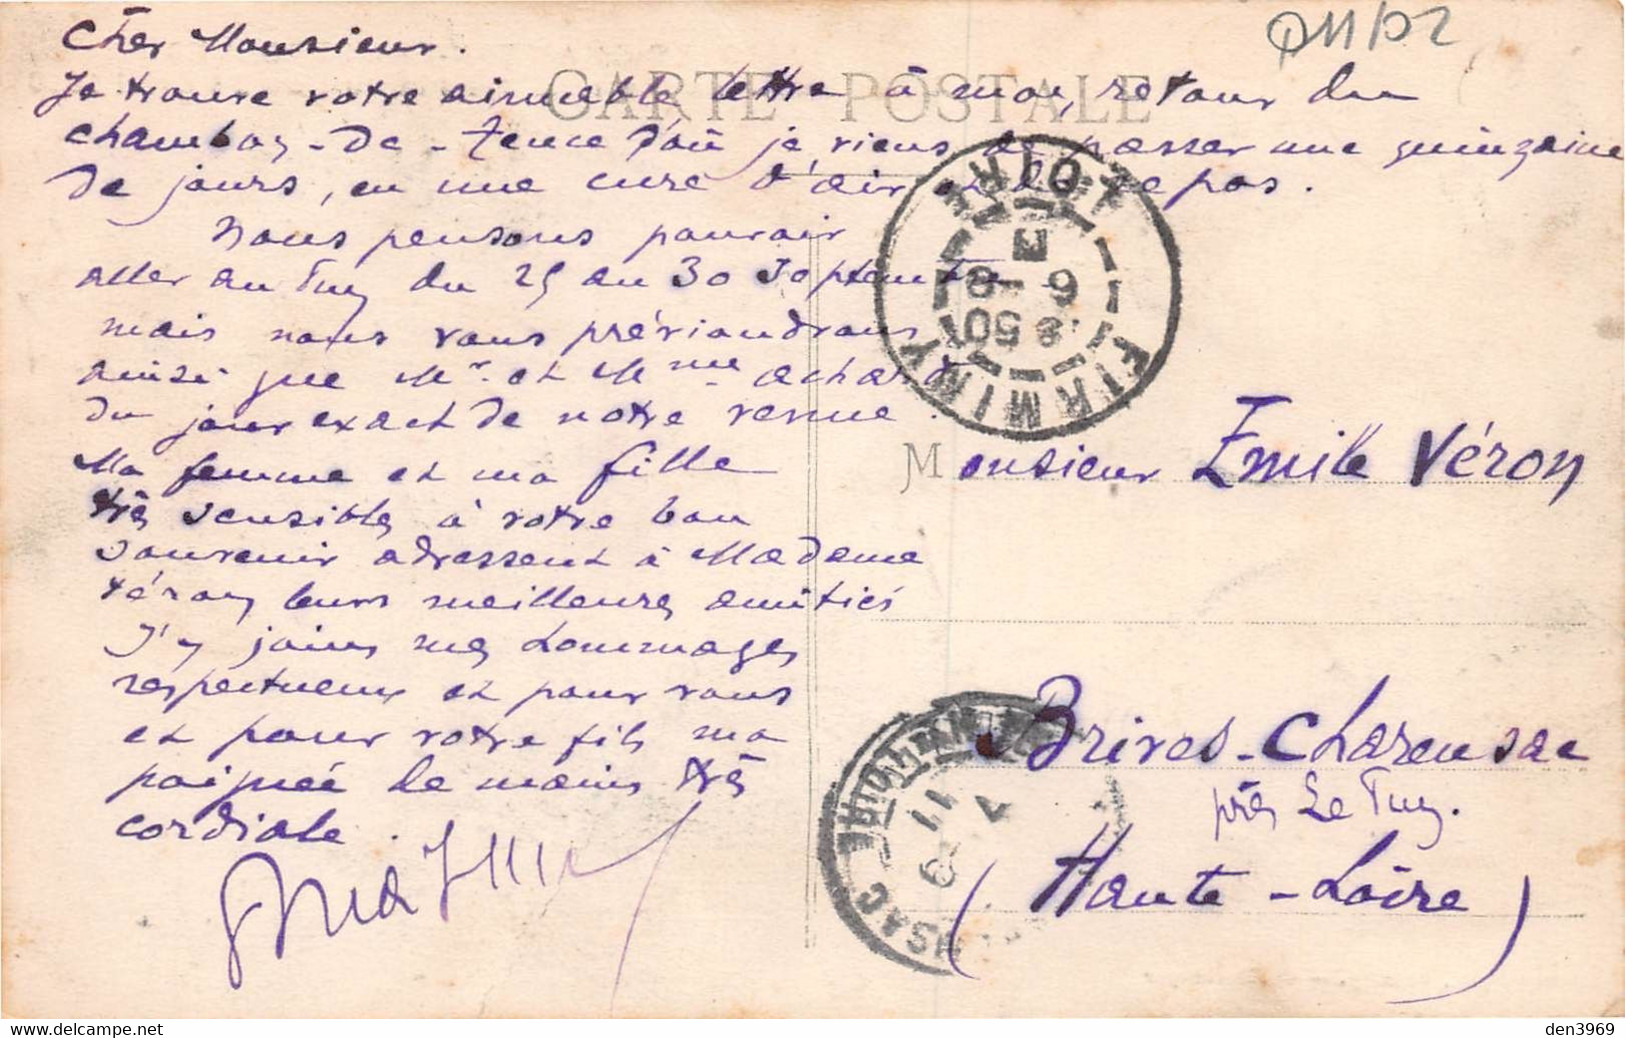 CARTE POSTALE
Cher Monsieur.
Je trouve votre aimable lettre à mon retour du
Chambon-de-Tence d'où je viens de passer une quinzaine
de jours, en une cure d'air et de repos.
Nous pensons pouvoir
aller au Puy du 25 au 30 Septembre
mais nous vous préviendrons
ainsi que Mr. et Mme Achard
du jour exact de notre venue.
Ma femme et ma fille
très sensibles à votre bon
souvenir adressent à Madame
Véron leurs meilleures amitiés
J'y joins mes hommages
respectueux et pour vous
et pour votre fils ma
poignée de mains très
cordiale.
Monsieur Emile Véron
Brives-Charensac
près Le Puy.
(Haute-Loire)
FIRMINY
LOIRE
6 -9
den3969